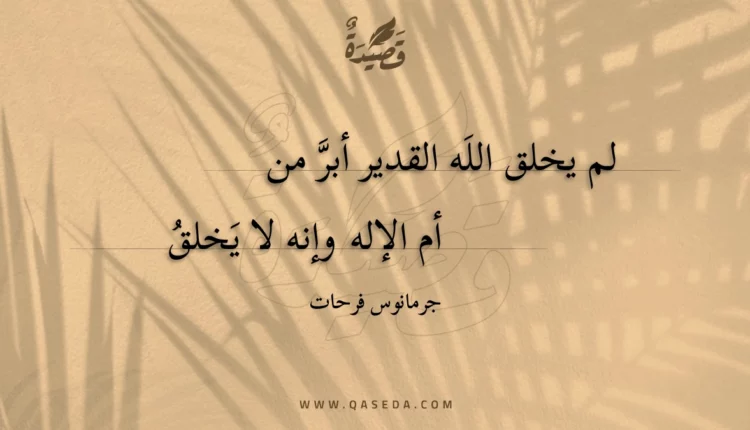 قَصِيْدَةٌ
لم يخلق اللَه القدير أبرَّ من
أم الإله وإنه لا يَخلقُ
جرمانوس فرحات
WWW.QASEDA.COM